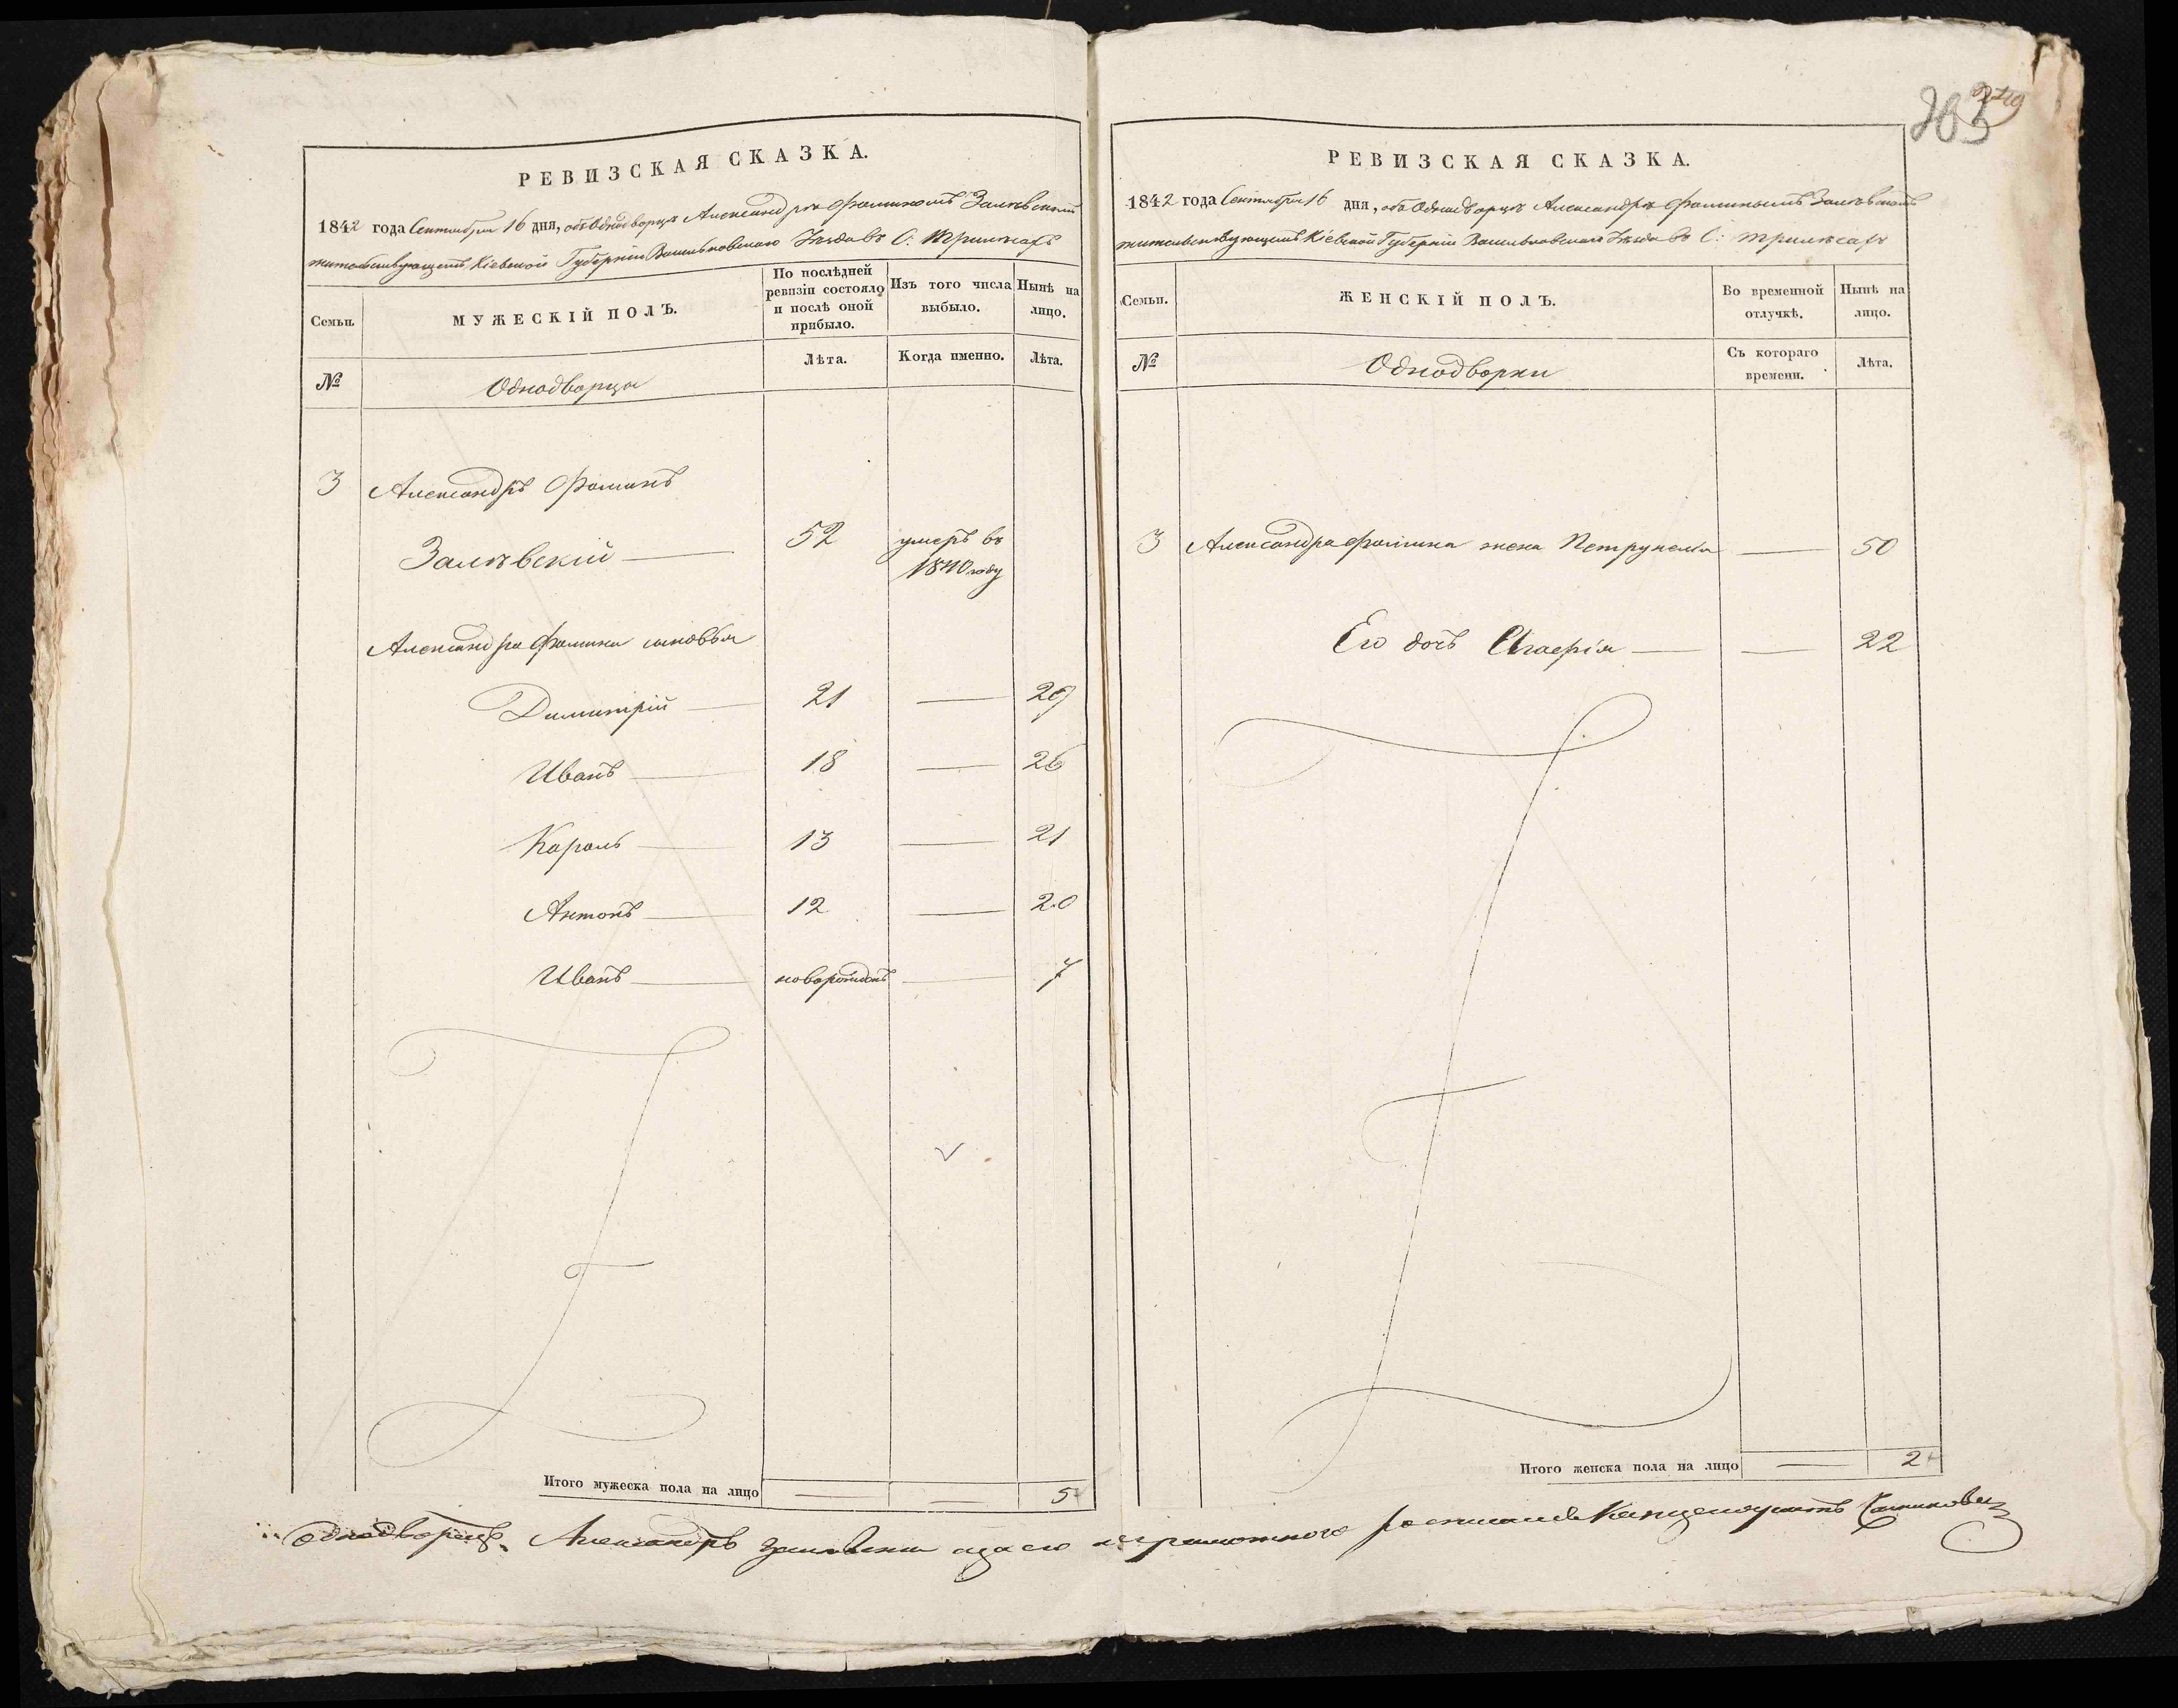 303
249
РЕВИЗСКАЯ СКАЗКА.
1842 года Сентября 16 дня, объ Однодворцѣ Александрѣ Фоминомъ Залѣвскимъ
жительствующемъ Кіевской Губерніи Васильковскаго Уѣзда въ С:
Семьи.
МУЖЕСКІЙ ПОЛЪ.
По послѣдней ревизіи состояло и послѣ оной прибыло.
Изъ того числа выбыло.
Нынѣ на лицо.
№
Однодворцы
Лѣта.
Когда именно.
Лѣта.
3 Александръ Фоминъ
Залѣвскій — 52 умеръ въ
1840 году
Александра Фомина сыновья
Димитрій — 21 — 29
Иванъ — 18 — 26
Кароль — 13 — 21
Антонъ — 12 — 20
Иванъ — новорожденъ — 7
Итого мужеска пола на лицо — — 5
РЕВИЗСКАЯ СКАЗКА.
1842 года Сентября 16 дня, объ Однодворцѣ Александрѣ Фоминымъ Залѣвскимъ
жительствующемъ Кіевской Губерніи Васильковскаго Уѣзда въ С:
Семьи.
ЖЕНСКІЙ ПОЛЪ.
Во временной отлучкѣ.
Нынѣ на лицо.
№
Однодворки
Съ котораго времени.
Лѣта.
3 Александра Фомина жена Петрунеля — 50
Его дочь — — 22
Итого женска пола на лицо — 2
однодворецъ Александръ Залѣвскій а за его неграмотного росписался Канцеляристъ